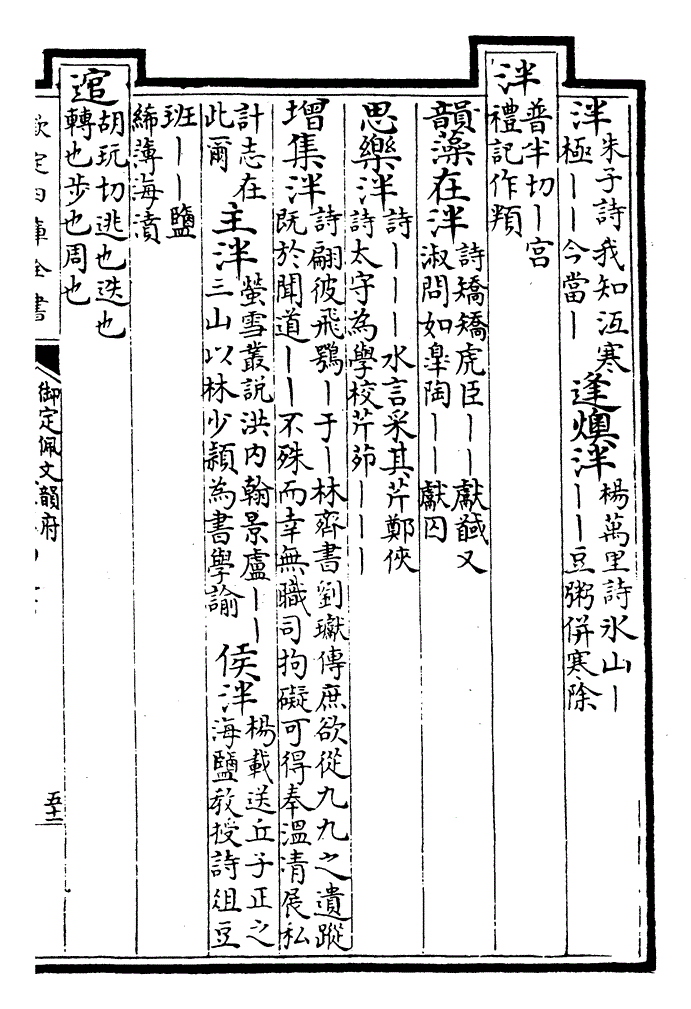 泮朱子詩我知沍寒
極——今當—
逢燠泮楊萬里詩氷山—
——豆粥併寒除
泮普半切—宮
禮記作頖
韻藻在泮詩矯矯虎臣——獻馘又
淑問如臯陶——獻囚
思樂泮詩———水言采其芹鄭俠
詩太守為學校芹茆———
增集泮詩翩彼飛鴞—于—林齊書劉瓛傳庶欲從九九之遺蹤
既於聞道——不殊而幸無職司拘礙可得奉溫清展私
計志在
此爾
主泮螢雪叢説洪内翰景盧——
三山以林少頴為書學諭
侯泮楊載送丘子正之
海鹽教授詩俎豆
班——鹽
絺薄海濆
逭胡玩切逃也迭也
轉也步也周也
欽定四庫全書
御定佩文韻府